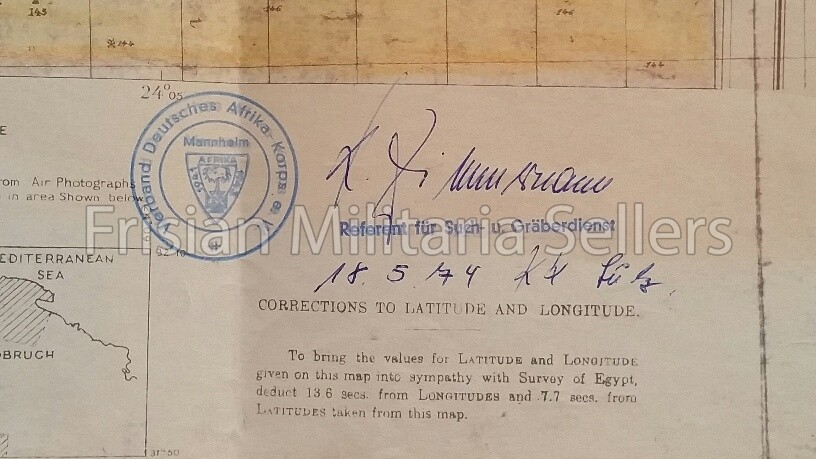 145
146
146
144
144
24°05
Verband Deutsches Afrika-Korps e.V.
Mannheim
AFRIKA
1941 1943
E
rom Air Photographs
in area Shown below
EDITERRANEAN
SEA
OBRUCH
31°50
K. Zimmermann
Referent für Such- u. Gräberdienst
Frisian Militaria Sellers
18. 5. 74
CORRECTIONS TO LATITUDE AND LONGITUDE.
To bring the values for LATITUDE and LONGITUDE
given on this map into sympathy with Survey of Egypt,
deduct 13.6 secs. from LONGITUDES and 7.7 secs. from
LATITUDES taken from this map.